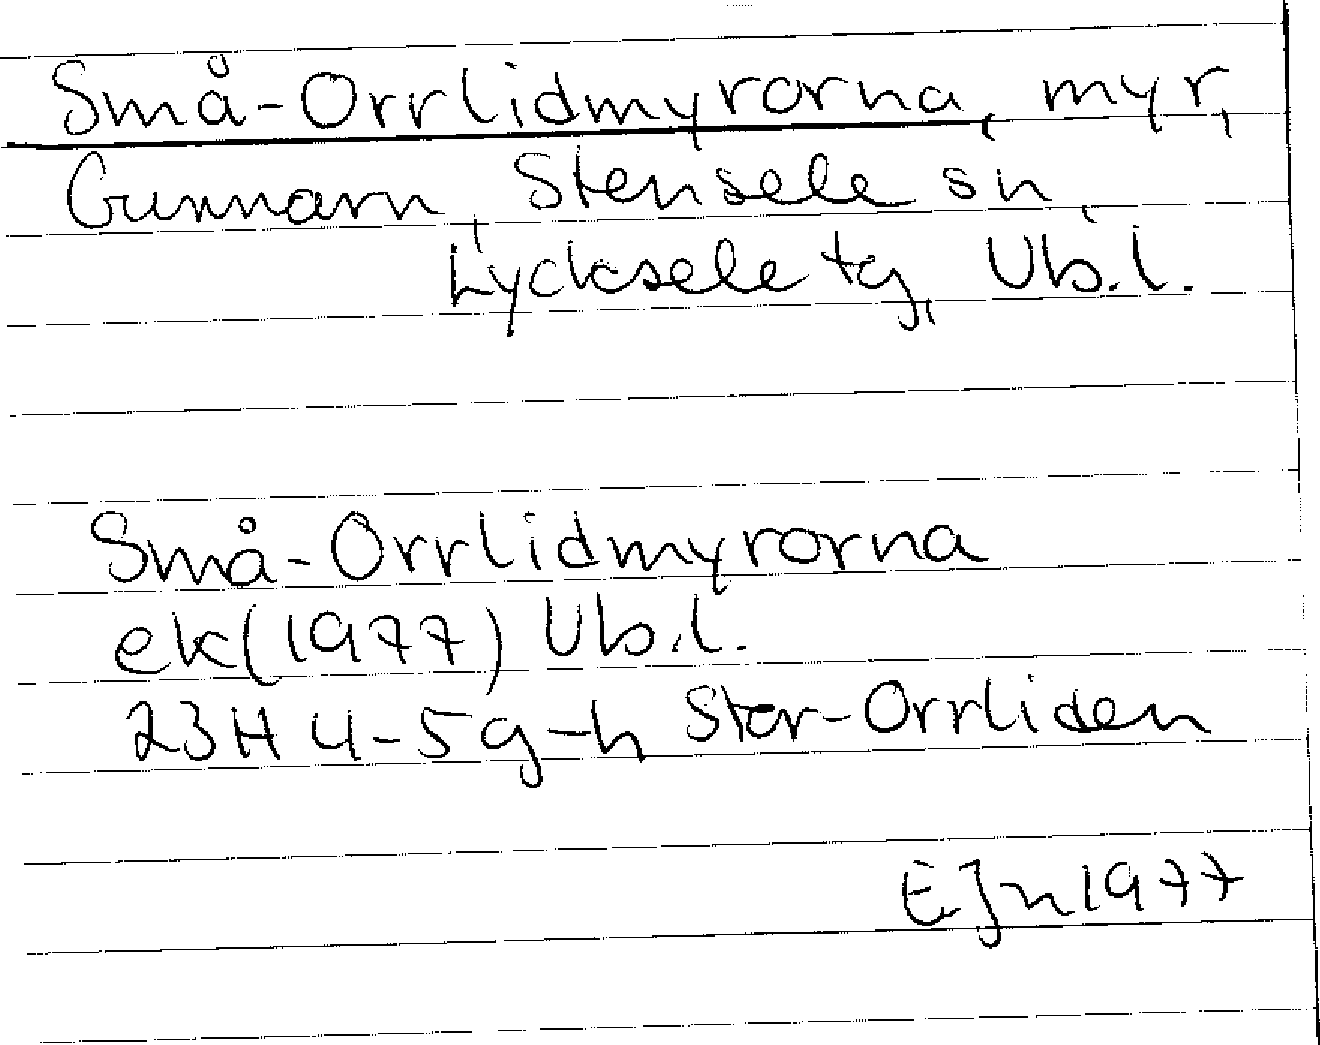 Små-Orrlidmyrorna, myr,
Gunnarn, Stensele sn,
Lycksele tg, Vb.l.
Små-Orrlidmyrorna
ek(1977) Vb.l.
23H 4-5g-h Stor-Orrliden
EJn 1977